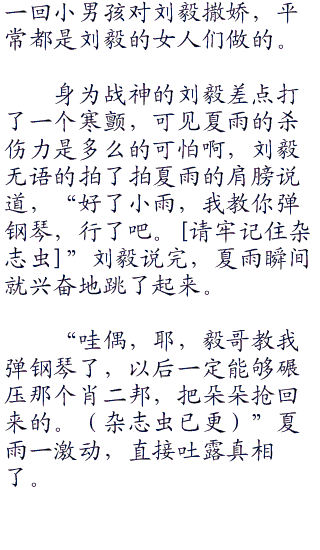 一回小男孩对刘毅撒娇，平
常都是刘毅的女人们做的。
身为战神的刘毅差点打
了一个寒颤，可见夏雨的杀
伤力是多么的可怕啊，刘毅
无语的拍了拍夏雨的肩膀说
道，“好了小雨，我教你弹
钢琴，行了吧。[请牢记住杂
志虫]”刘毅说完，夏雨瞬间
就兴奋地跳了起来。
“哇偶，耶，毅哥教我
弹钢琴了，以后一定能够碾
压那个肖二邦，把朵朵抢回
来的。（杂志虫已更）”夏
雨一激动，直接吐露真相
了。